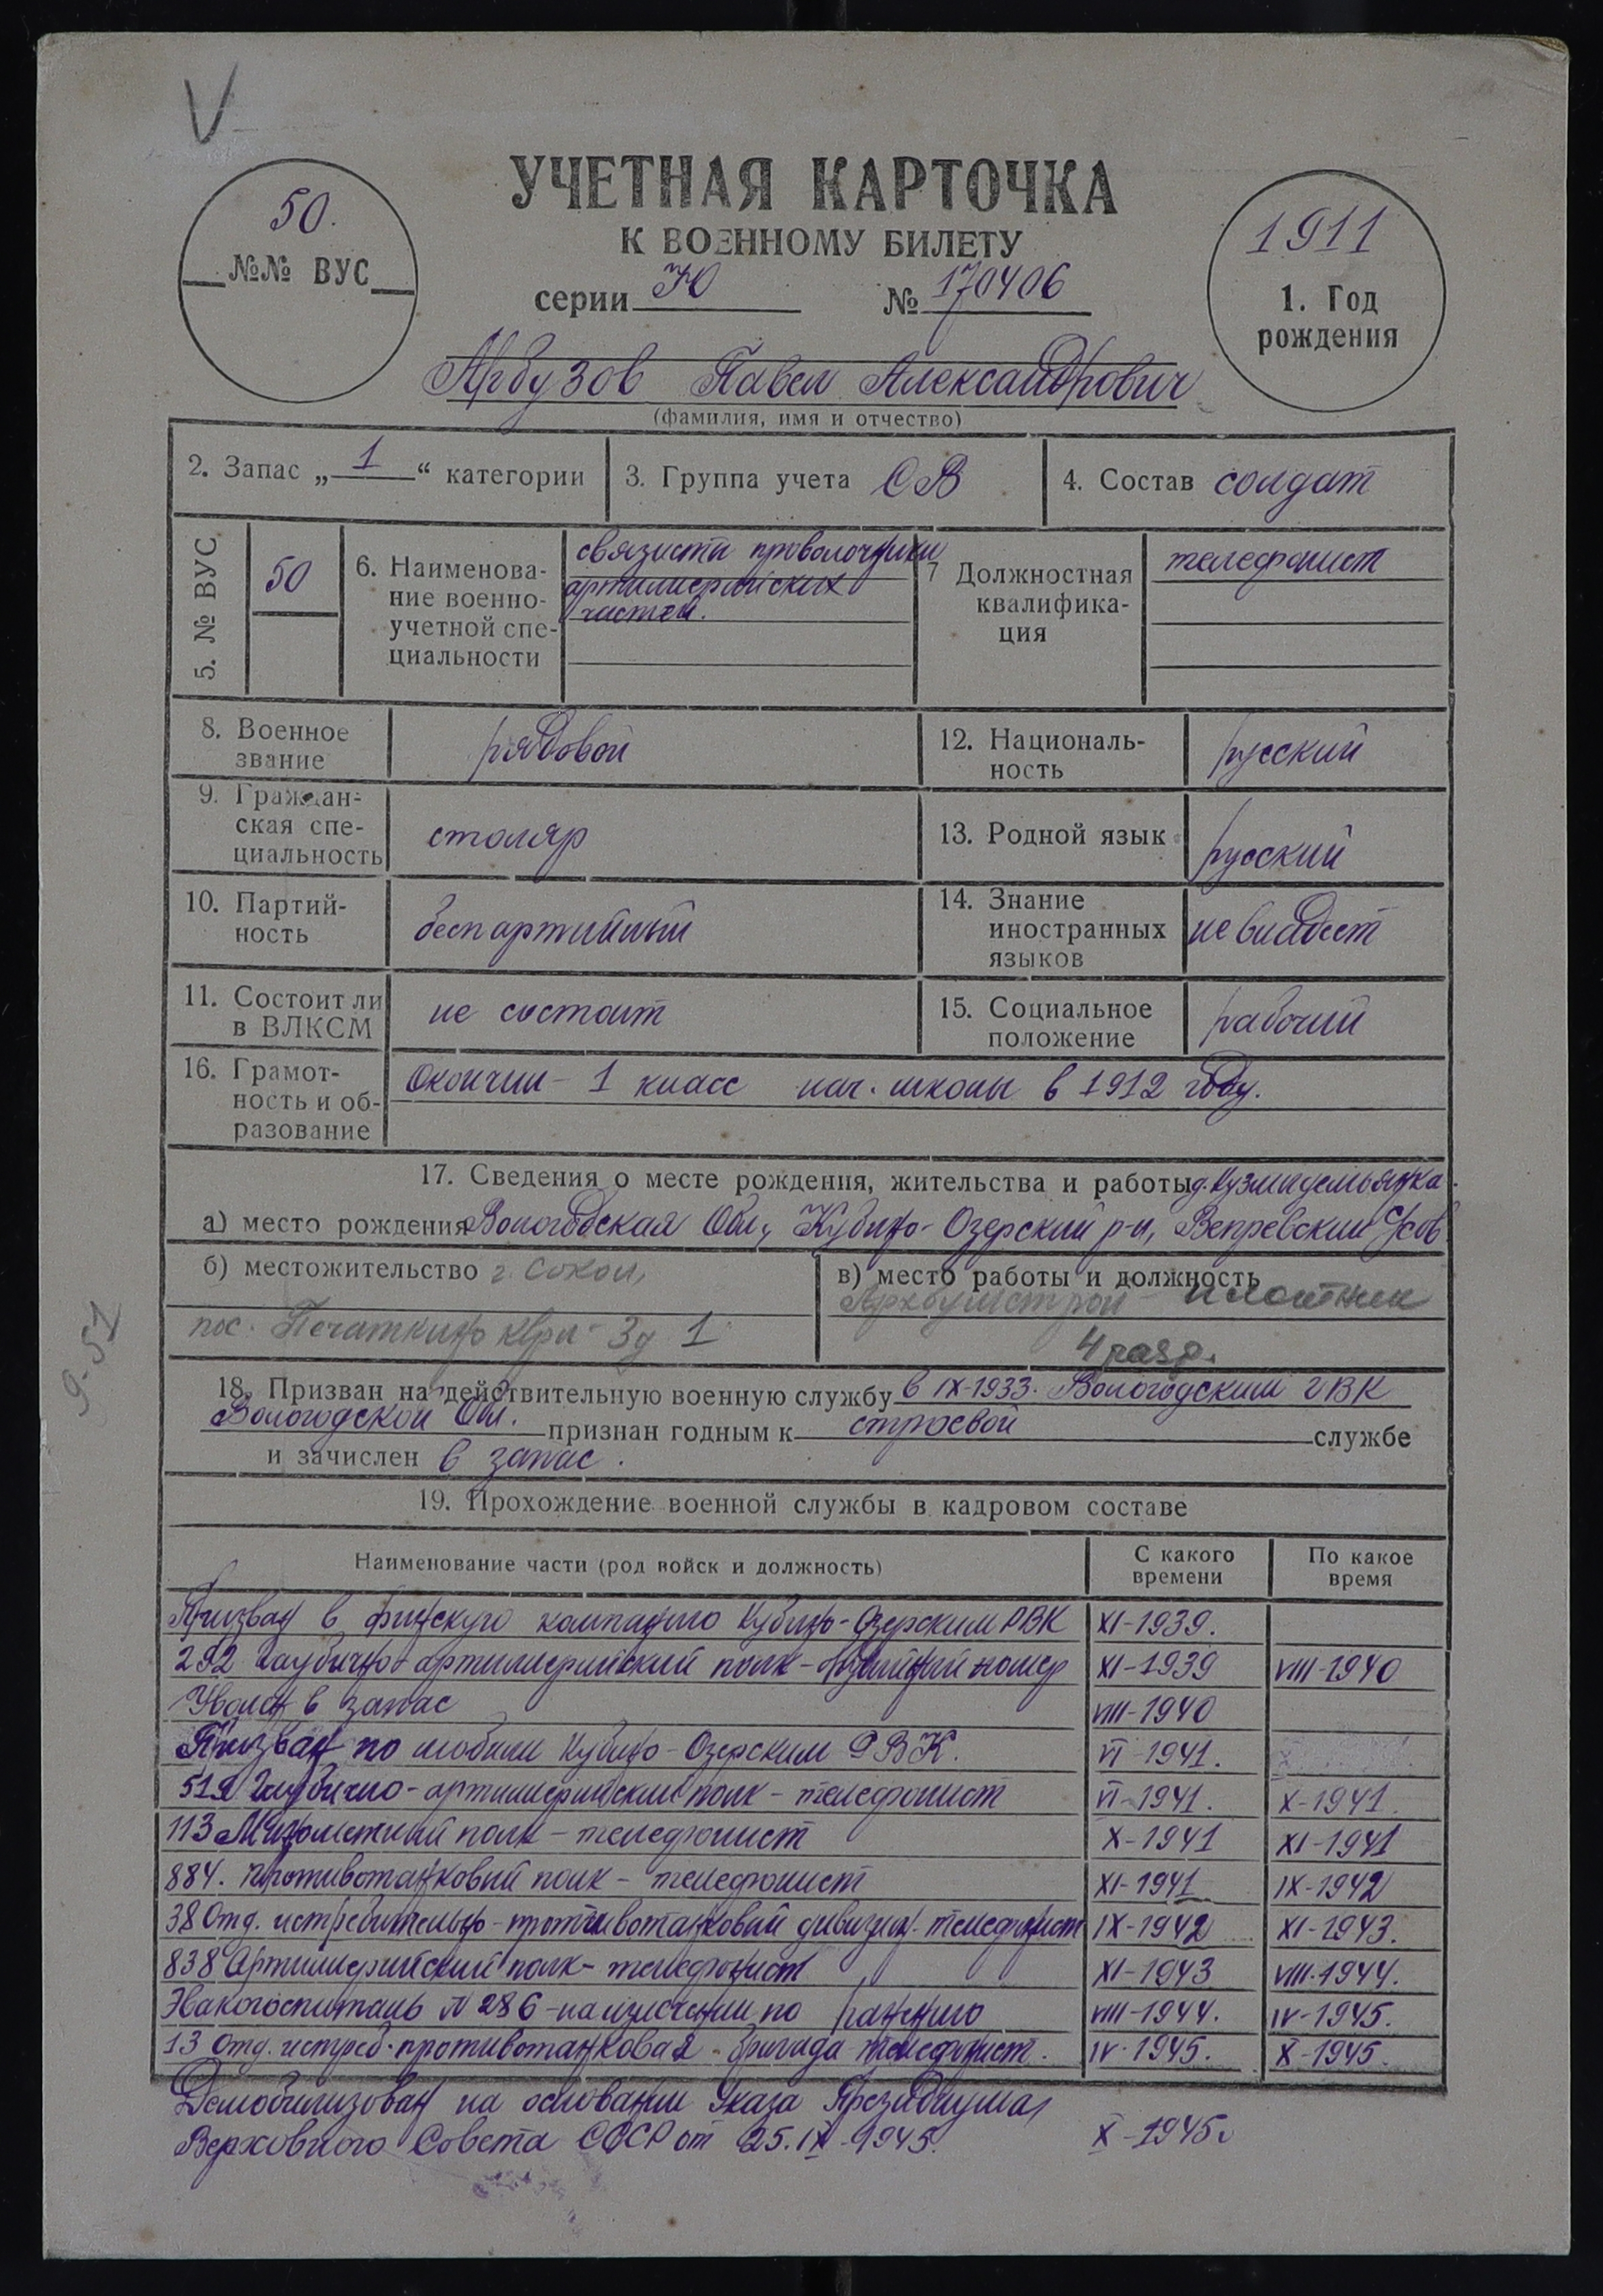 V
УЧЕТНАЯ КАРТОЧКА
К ВОЕННОМУ БИЛЕТУ
серии Ю № 170406
50.
№№ ВУС
1911
1. Год
рождения
Арбузов Павел Александрович
(фамилия, имя и отчество)
2. Запас „ 1 “ категории
3. Группа учета СВ
4. Состав солдат
5. № ВУС
50
6. Наименова-
ние военно-
учетной спе-
циальности
связисты проволочники
артиллерийских
частей.
7 Должностная
квалифика-
ция
телефонист
8. Военное
звание
рядовой
12. Националь-
ность
русский
9. Граждан-
ская спе-
циальность
столяр
13. Родной язык
русский
10. Партий-
ность
беспартийный
14. Знание
иностранных
языков
не владеет
11. Состоит ли
в ВЛКСМ
не состоит
15. Социальное
положение
рабочий
16. Грамот-
ность и об-
разование
Окончил - 1 класс нач. школы в 1912 году.
17. Сведения о месте рождения, жительства и работы д. Кузмидемьянка.
а) место рождения Вологодская Обл, Кубино-Озерский р-н, Вепревский с/сов
б) местожительство г. Сокол,
пос. Печаткино квр- 3д 1
в) место работы и должность
Архбумстрой - плотник
4 разр.
18. Призван на действительную военную службу в IX-1933. Вологодским ГВК
Вологодской Обл. признан годным к строевой службе
и зачислен в запас.
19. Прохождение военной службы в кадровом составе
Наименование части (род войск и должность)
С какого
времени
По какое
время
Призван в финскую кампанию Кубино-Озерским РВК XI-1939.
292 Гаубично артиллерийский полк - орудийный номер XI-1939 VIII-1940
Уволен в запас VIII-1940
Призван по мобил Кубино-Озерским РВК. VI-1941.
519 Гаубично-артиллерийский полк - телефонист VI-1941. X-1941.
113 Минометный полк - телефонист X-1941 XI-1941
884. Противотанковый полк - телефонист XI-1941 IX-1942
38 Отд. истребительно-противотанковый дивизион. телефонист IX-1942 XI-1943.
838 Артиллерийский полк - телефонист XI-1943 VIII-1944.
Эвакогоспиталь № 286 - на излечении по ранению VIII-1944. IV-1945.
13 Отд. истреб. противотанковая бригада телефонист. IV-1945. X-1945.
Демобилизован на основании Указа Президиума
Верховного Совета СССР от 25.IX-1945. X-1945.
9-51